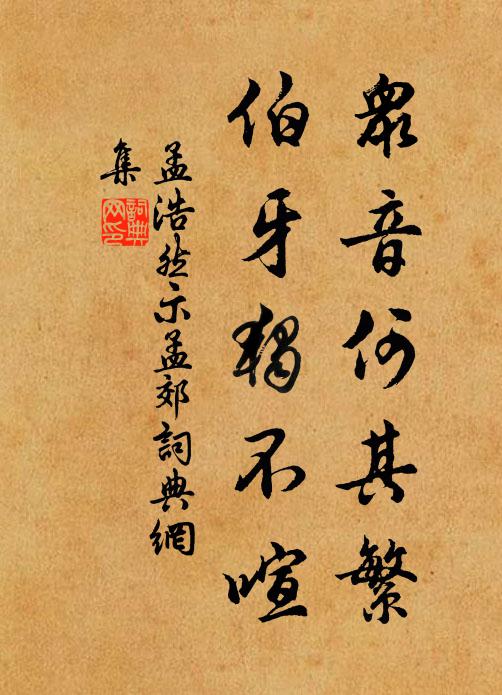 眾音何其繁
伯牙獨不喧
孟浩然示孟郊詞典網
集
詞典網印